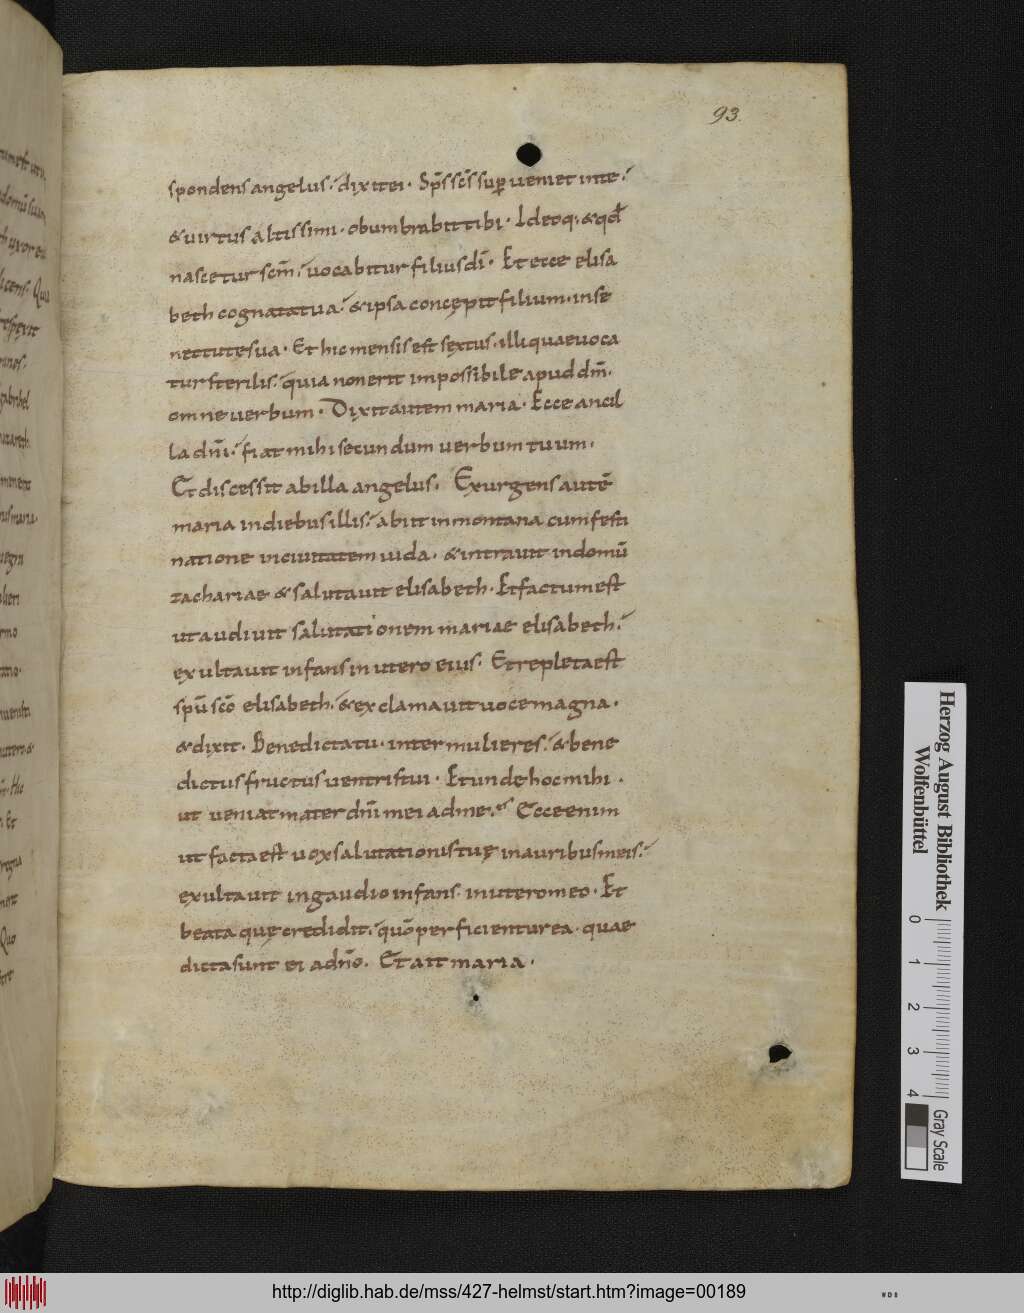 93.
spondens angelus. dixit ei. Sp̄s sc̄s super ueniet inte.
& uirtus altissimi. obumbrabit tibi. Ideoq; & qđ
nascetur scm̄. uocabitur filius dī. Et ecce elisa
beth cognata tua. & ipsa concępit filium. inse
nectute sua. Et hic mensis est sextus. illi quae uoca
tur sterilis. quia non erit impossibile apud dm̄.
omne uerbum. Dixit autem maria. Ecce ancil
la dn̄i. fiat mihi secundum uerbum tuum.
Et discessit ab illa angelus. Exurgens autē
maria indiebus illis. abiit in montana cum festi
natione inciuitatem iuda. & intrauit indomū
zachariae & salutauit elisabeth. Et factum est
ut audiuit salutationem mariae elisabeth.
exultauit infans in utero eius. Et repleta est
spū scō elisabeth. & exclamauit uoce magna.
& dixit. Benedicta tu. inter mulieres. & bene
dictus fructus uentris tui. Et unde hoc mihi.
ut ueniat mater dn̄i mei adme. Ecce enim
ut facta est uox salutationis tuę inauribus meis.
exultauit ingaudio infans. inutero meo. Et
beata quę credidit. quō perficientur ea. quae
dicta sunt ei adn̄o. Et ait maria.
Herzog August Bibliothek
Wolfenbüttel
0 1 2 3 4
Gray Scale
http://diglib.hab.de/mss/427-helmst/start.htm?image=00189